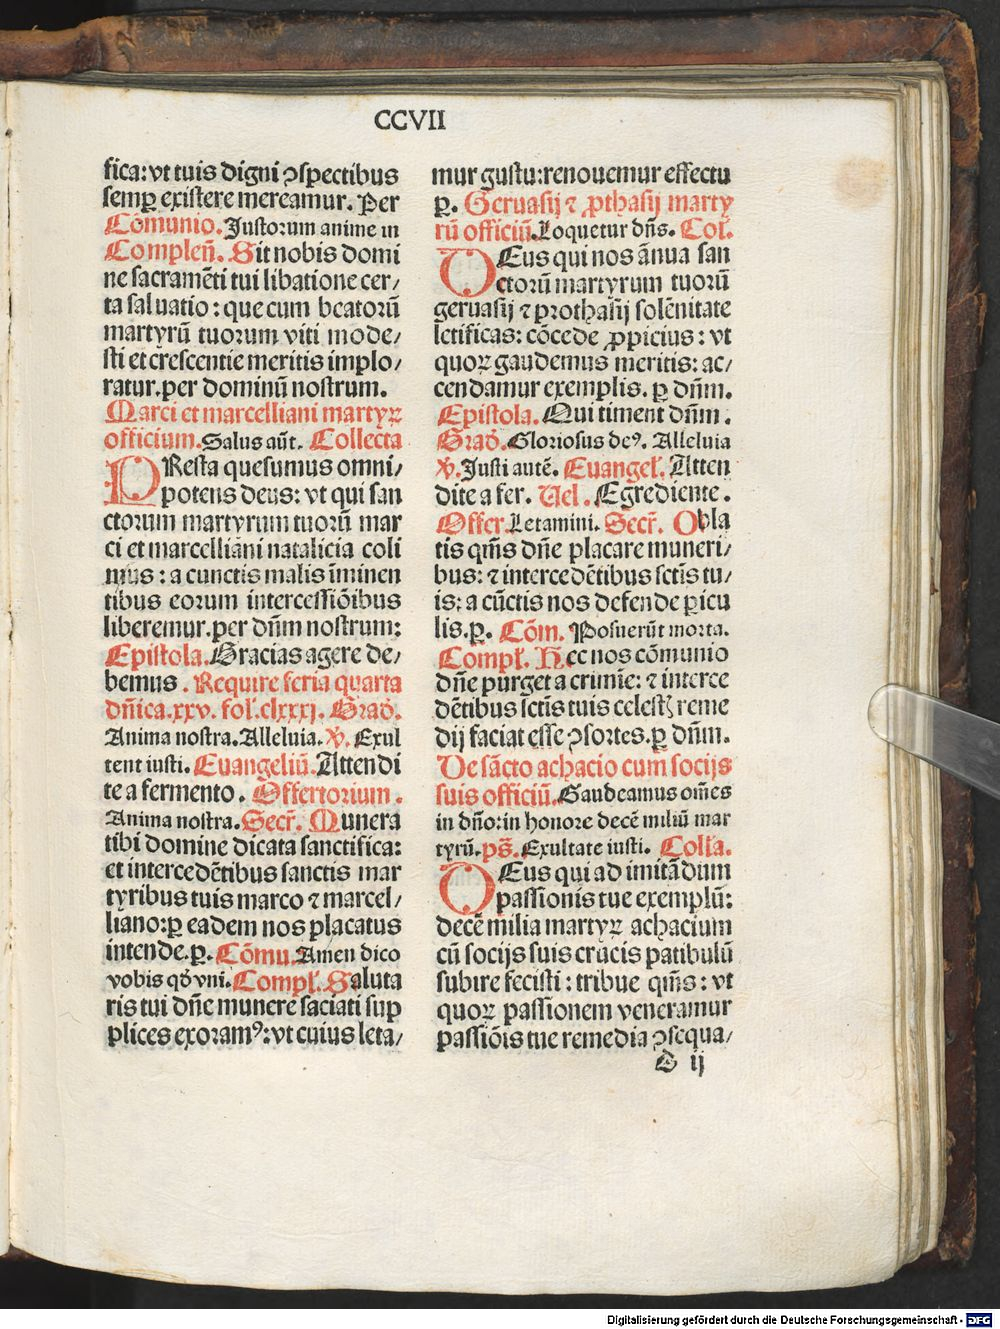 CCVII
fica: vt tuis digni ↄspectibus
semꝑ existere mereamur. Per
Cōmunio. Justorum anime in
Compleñ. Sit nobis domi
ne sacramēti tui libatione cer/
ta saluatio: que cum beatorū
martyrū tuorum viti mode/
sti et crescentie meritis implo/
ratur. per dominū nostrum.
Marci et marcelliani martyrꝝ
officium. Salus aūt. Collecta
PResta quesumus omni/
potens deus: vt qui san
ctorum martyrum tuorū mar
ci et marcelliani natalicia coli
mus: a cunctis malis īminen
tibus eorum intercessiōibus
liberemur. per dn̄m nostrum:
Epistola. Gracias agere de/
bemus. Require feria quarta
dn̄ica. xxv. fol. clxxxj. Grad̄.
Anima nostra. Alleluia. ꝟ. Exul
tent iusti. Euangeliū. Attendi
te a fermento. Offertorium.
Anima nostra. Secr̄. Munera
tibi domine dicata sanctifica:
et intercedētibus sanctis mar
tyribus tuis marco ⁊ marcel/
liano: ꝑ eadem nos placatus
intende. ꝑ. Cōmu. Amen dico
vobis qd̄ vni. Compl̄. Saluta
ris tui dn̄e munere saciati sup
plices exoramꝰ: vt cuius leta/
mur gustu: renouemur effectu
ꝑ. Geruasij ⁊ ꝓthasij marty
rū officiū. Loquetur dn̄s. Col.
DEus qui nos ānua san
ctorū martyrum tuorū
geruasij ⁊ prothasij solēnitate
letificas: cōcede ꝓpicius: vt
quoꝝ gaudemus meritis: ac/
cendamur exemplis. ꝑ dn̄m.
Epistola. Qui timent dn̄m.
Grad̄. Gloriosus deꝰ. Alleluia
ꝟ. Justi autē. Euangel̄. Atten
dite a fer. Uel. Egrediente.
Offer. Letamini. Secr̄. Obla
tis qm̄s dn̄e placare muneri/
bus: ⁊ intercedētibus sctīs tu/
is: a cūctis nos defende ꝑicu
lis. ꝑ. Cōm. Posuerūt morta.
Compl̄. Hec nos cōmunio
dn̄e purget a crimīe: ⁊ interce
dētibus sctīs tuis celestꝭ reme
dij faciat esse ↄsortes. ꝑ dn̄m.
De sācto achacio cum socijs
suis officiū. Gaudeamus om̄es
in dn̄o: in honore decē miliū mar
tyrū. ps̄. Exultate iusti. Coll̄a.
DEus qui ad imitādum
passionis tue exemplū:
decē milia martyꝝ achacium
cū socijs suis crucis patibulū
subire fecisti: tribue qm̄s: vt
quoꝝ passionem veneramur
passiōis tue remedia ↄsequa/
D ij
Digitalisierung gefördert durch die Deutsche Forschungsgemeinschaft - DFG